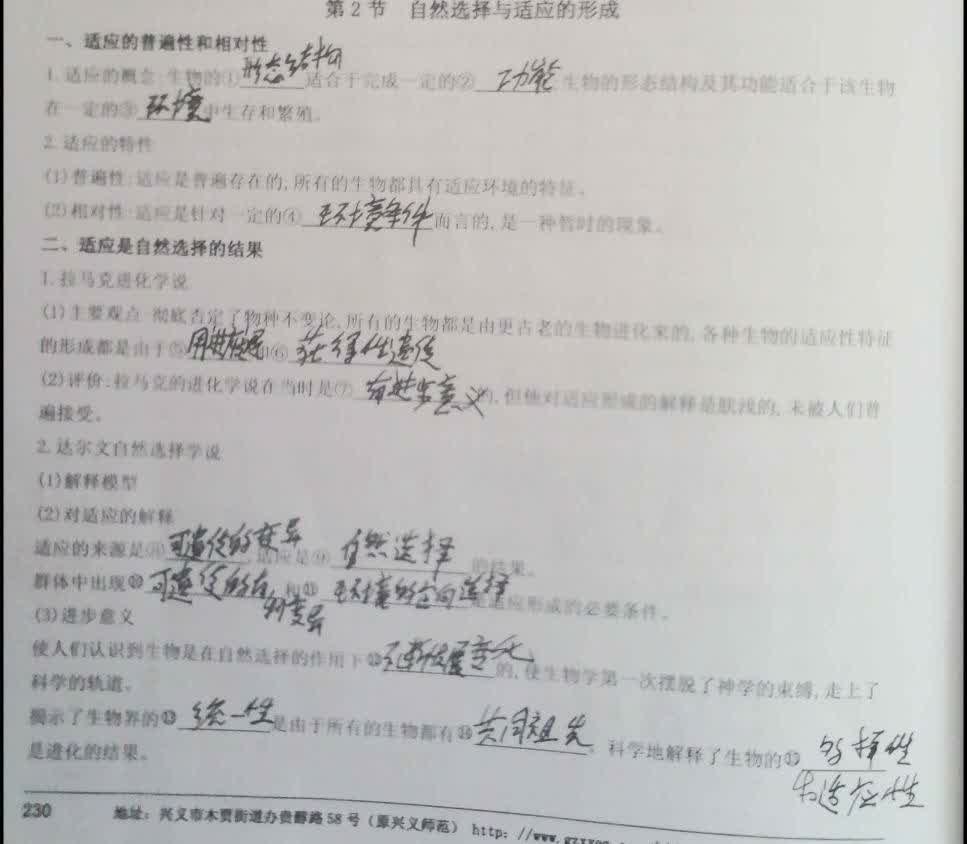 第2节 自然选择与适应的形成
一、适应的普遍性和相对性
1.适应的概念:生物的①形态结构适合于完成一定的②功能,生物的形态结构及其功能适合于该生物
在一定的③环境中生存和繁殖。
2.适应的特性
(1)普遍性:适应是普遍存在的,所有的生物都具有适应环境的特征。
(2)相对性:适应是针对一定的④环境条件而言的,是一种暂时的现象。
二、适应是自然选择的结果
1.拉马克进化学说
(1)主要观点:彻底否定了物种不变论,所有的生物都是由更古老的生物进化来的,各种生物的适应性特征
的形成都是由于⑤用进废退和⑥获得性遗传
(2)评价:拉马克的进化学说在当时是⑦有进步意义的,但他对适应形成的解释是肤浅的,未被人们普
遍接受。
2.达尔文自然选择学说
(1)解释模型
(2)对适应的解释
适应的来源是⑧可遗传的变异,适应是⑨自然选择的结果。
群体中出现⑩可遗传的有利变异和⑪环境的定向选择是适应形成的必要条件。
(3)进步意义
使人们认识到生物是在自然选择的作用下⑫不断发展变化的,使生物学第一次摆脱了神学的束缚,走上了
科学的轨道。
揭示了生物界的⑬统一性是由于所有的生物都有⑭共同祖先。科学地解释了生物的⑮多样性
和适应性
是进化的结果。
230 地址:兴义市木贾街道办贵醇路58号(原兴义师范) http://www.